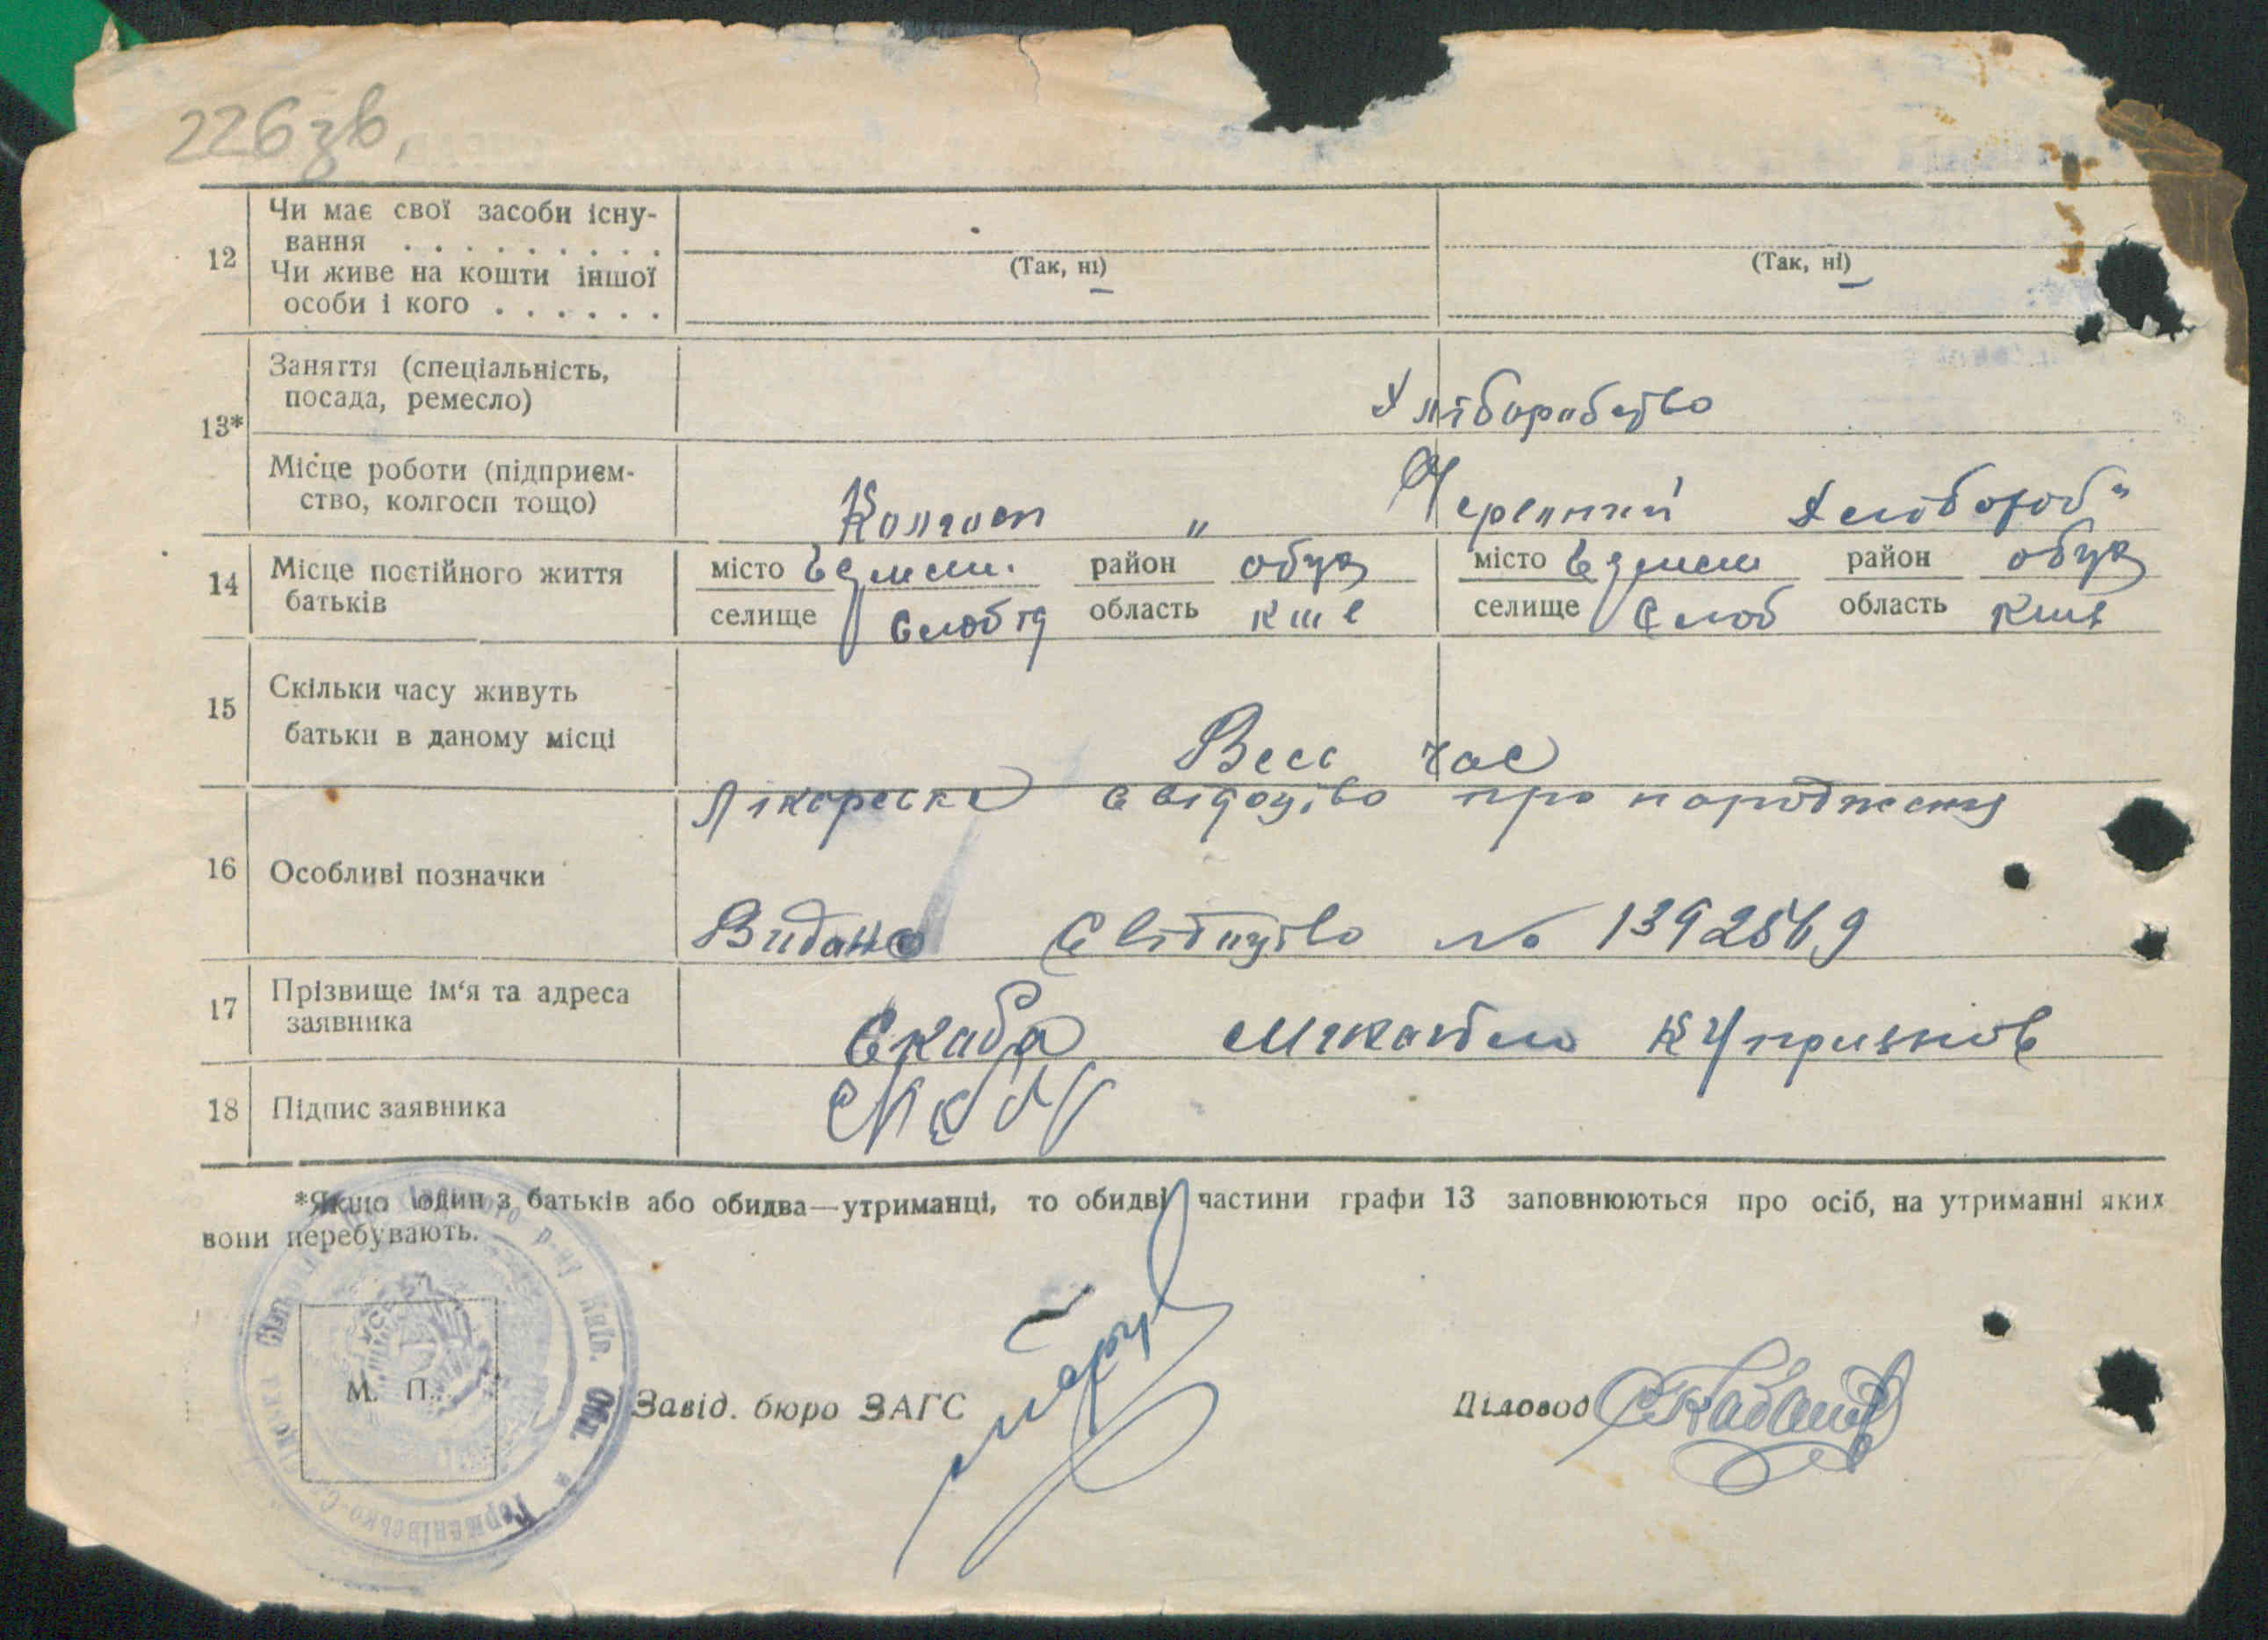 226 зв,
12 Чи має свої засоби існу-
вання . . . . . . . . .
Чи живе на кошти іншої
особи і кого . . . . . .
(Так, ні) (Так, ні)
13* Заняття (спеціальність,
посада, ремесло)
Хліборобство
Місце роботи (підприєм-
ство, колгосп тощо)
Колгосп " Червоний Хлібороб"
14 Місце постійного життя
батьків
місто район обух місто район обух
селище Слобід область Киє селище Слоб область Київ
15 Скільки часу живуть
батьки в даному місці
Весь час
16 Особливі позначки
Лікарське свідоцтво про народження
Видано Свідоцтво № 1392569
17 Прізвище ім'я та адреса
заявника
Скиба Михайло
18 Підпис заявника
*Якщо один з батьків або обидва—утриманці, то обидві частини графи 13 заповнюються про осіб, на утриманні яких
вони перебувають.
р-ну Київ. Обл.
М. П.
Завід. бюро ЗАГС
Діловод